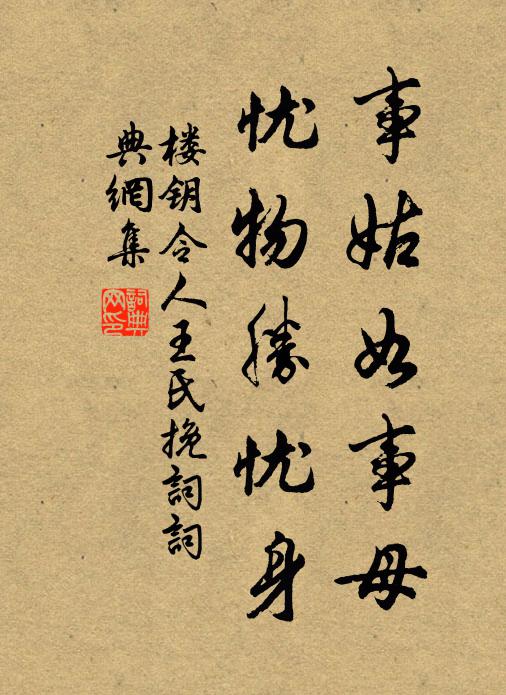 事姑如事母
忧物勝忧身
楼钥令人王氏挽詞詞
典網集
詞典网印